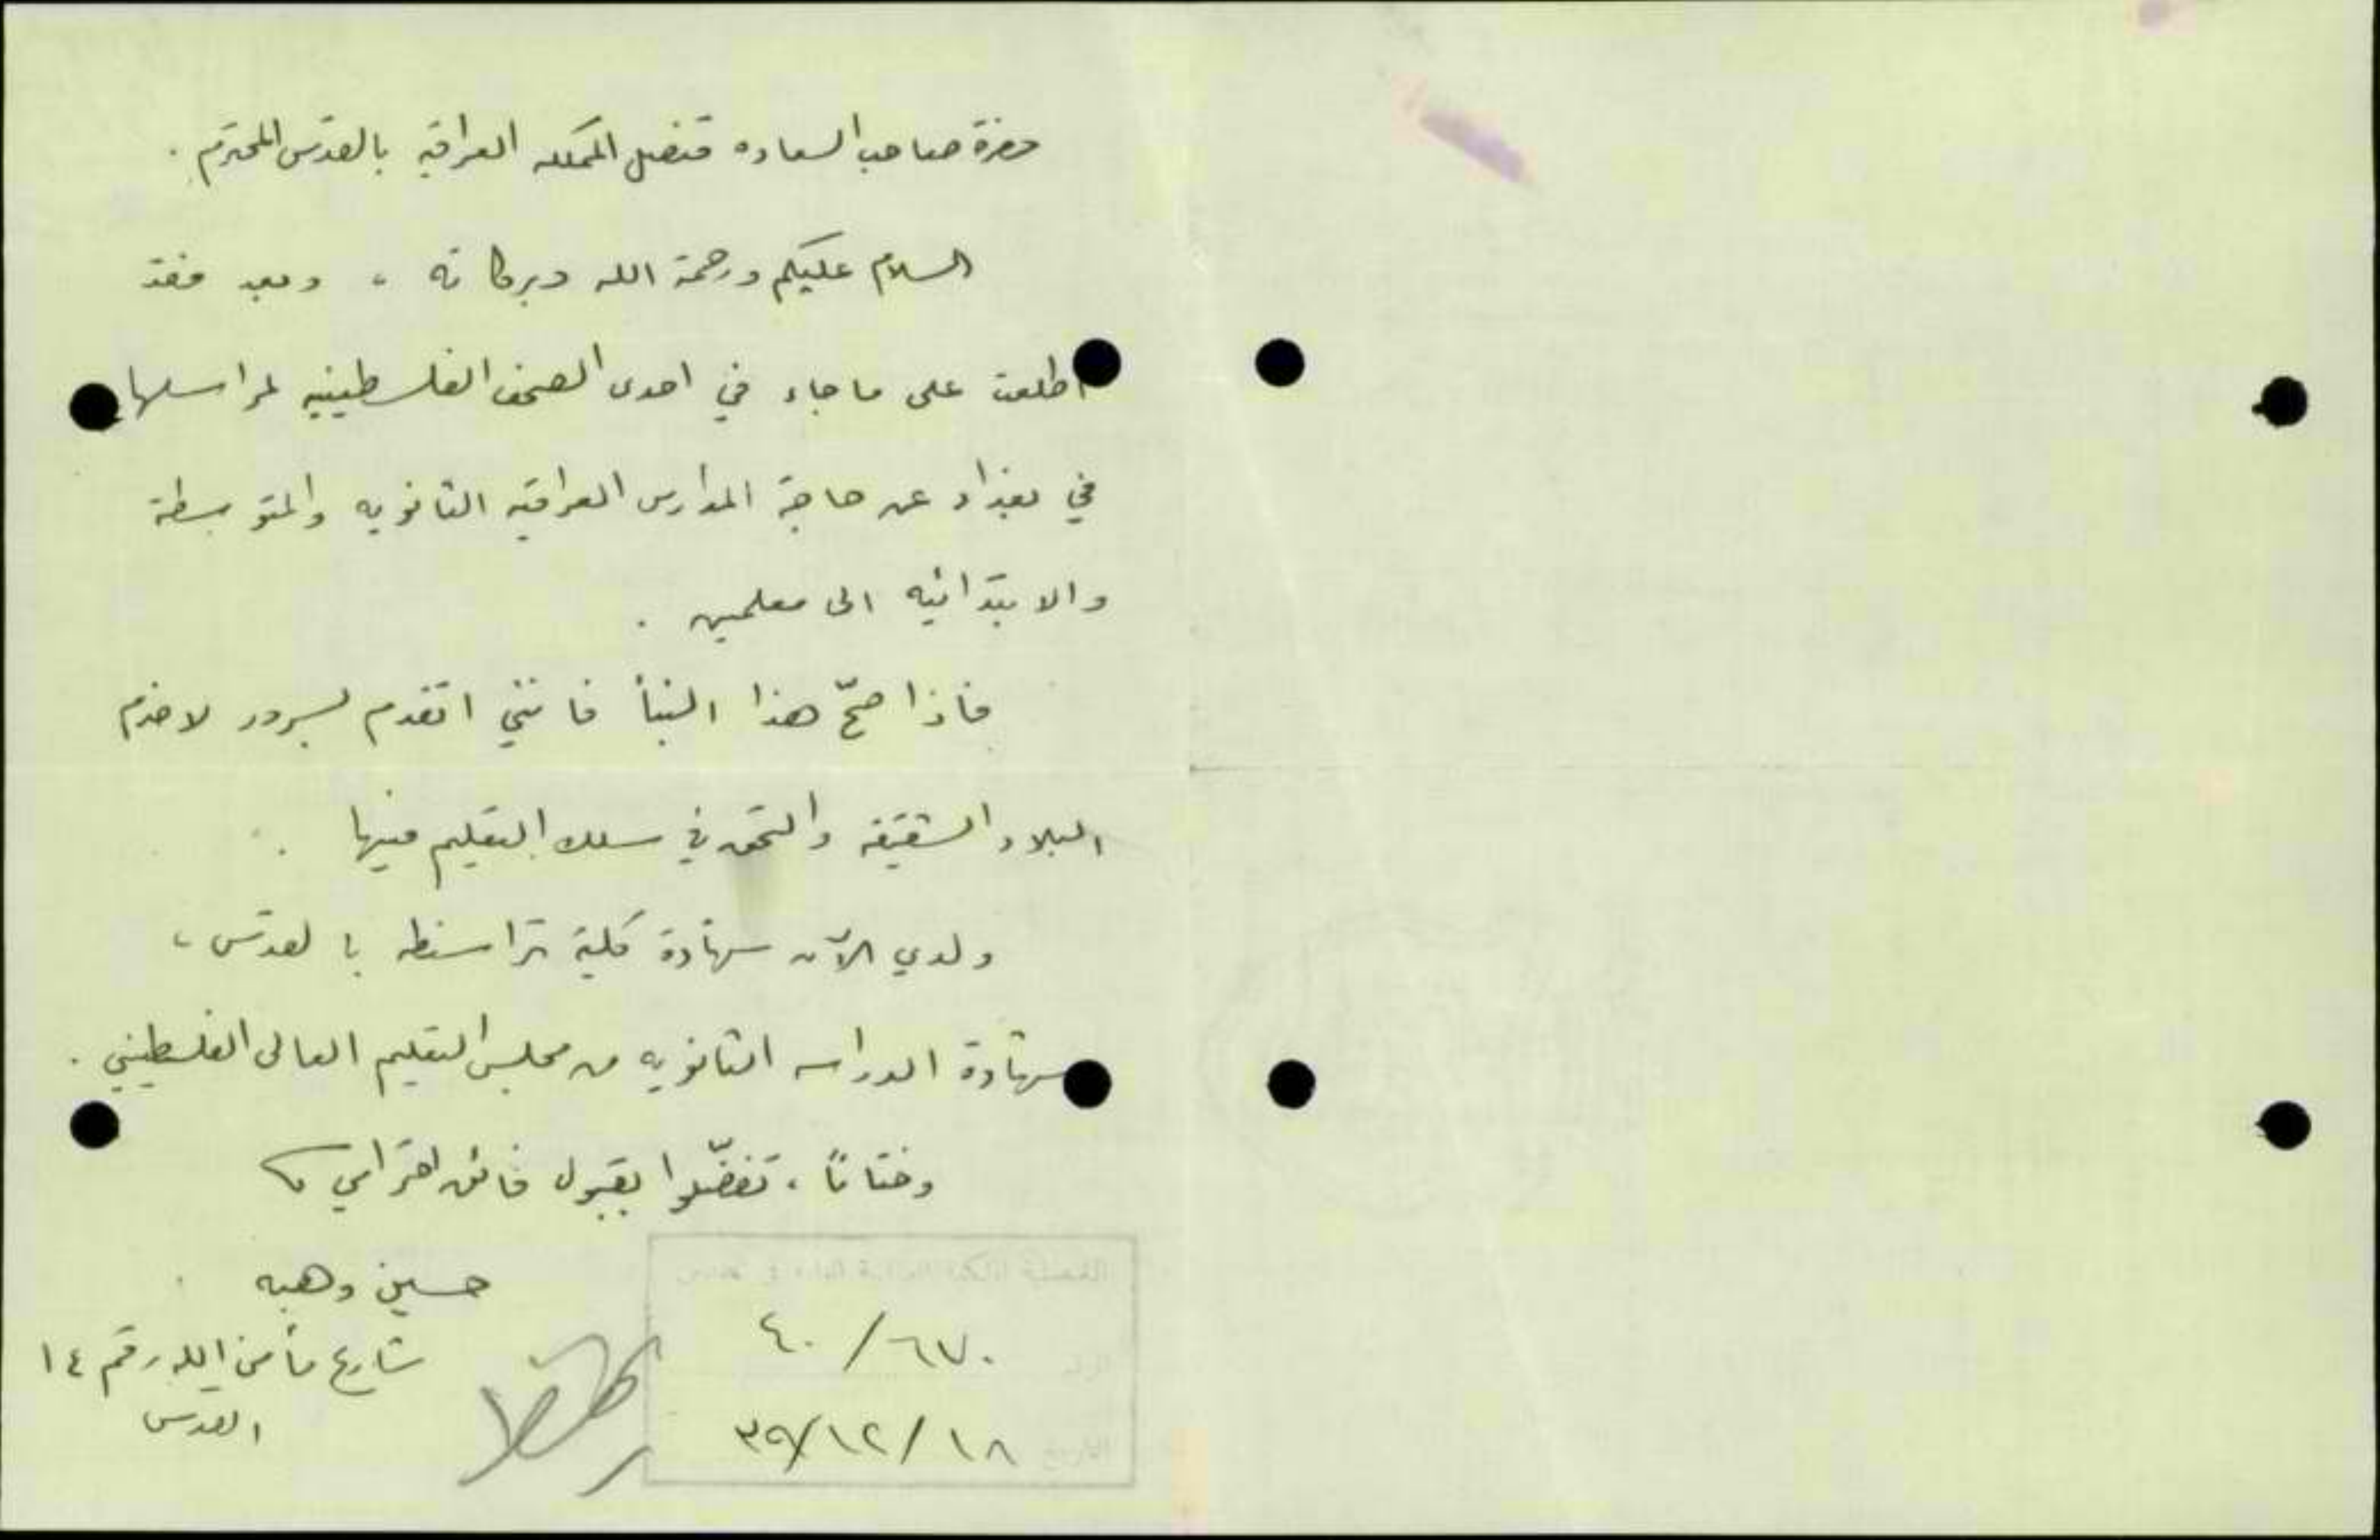 حضرة صاحب السعاده قنصل المملكه العراقيه بالقدس المحترم .
السلام عليكم ورحمة الله وبركاته ، وبعد فقد
اطلعت على ما جاء في احدى الصحف الفلسطينيه لمراسلها
في بغداد عن حاجة المدارس العراقيه الثانويه والمتوسطة
والابتدائيه الى معلمين .
فاذا صحّ هذا النبأ فانني اتقدم بسرور لاخدم
البلاد الشقيقه والتحق في سلك التعليم فيها .
ولدي الآن شهادة كلية تراسنطه بالقدس ،
شهادة الدراسه الثانويه من مجلس التعليم العالى الفلسطيني .
وختامًا ، تفضّلوا بقبول فائق احترامي
حسين وهبه
شارع مأمن الله رقم ١٤
القدس
الرقم ٦٧٠/٤٠
التاريخ ١٨/١٢/٣٩